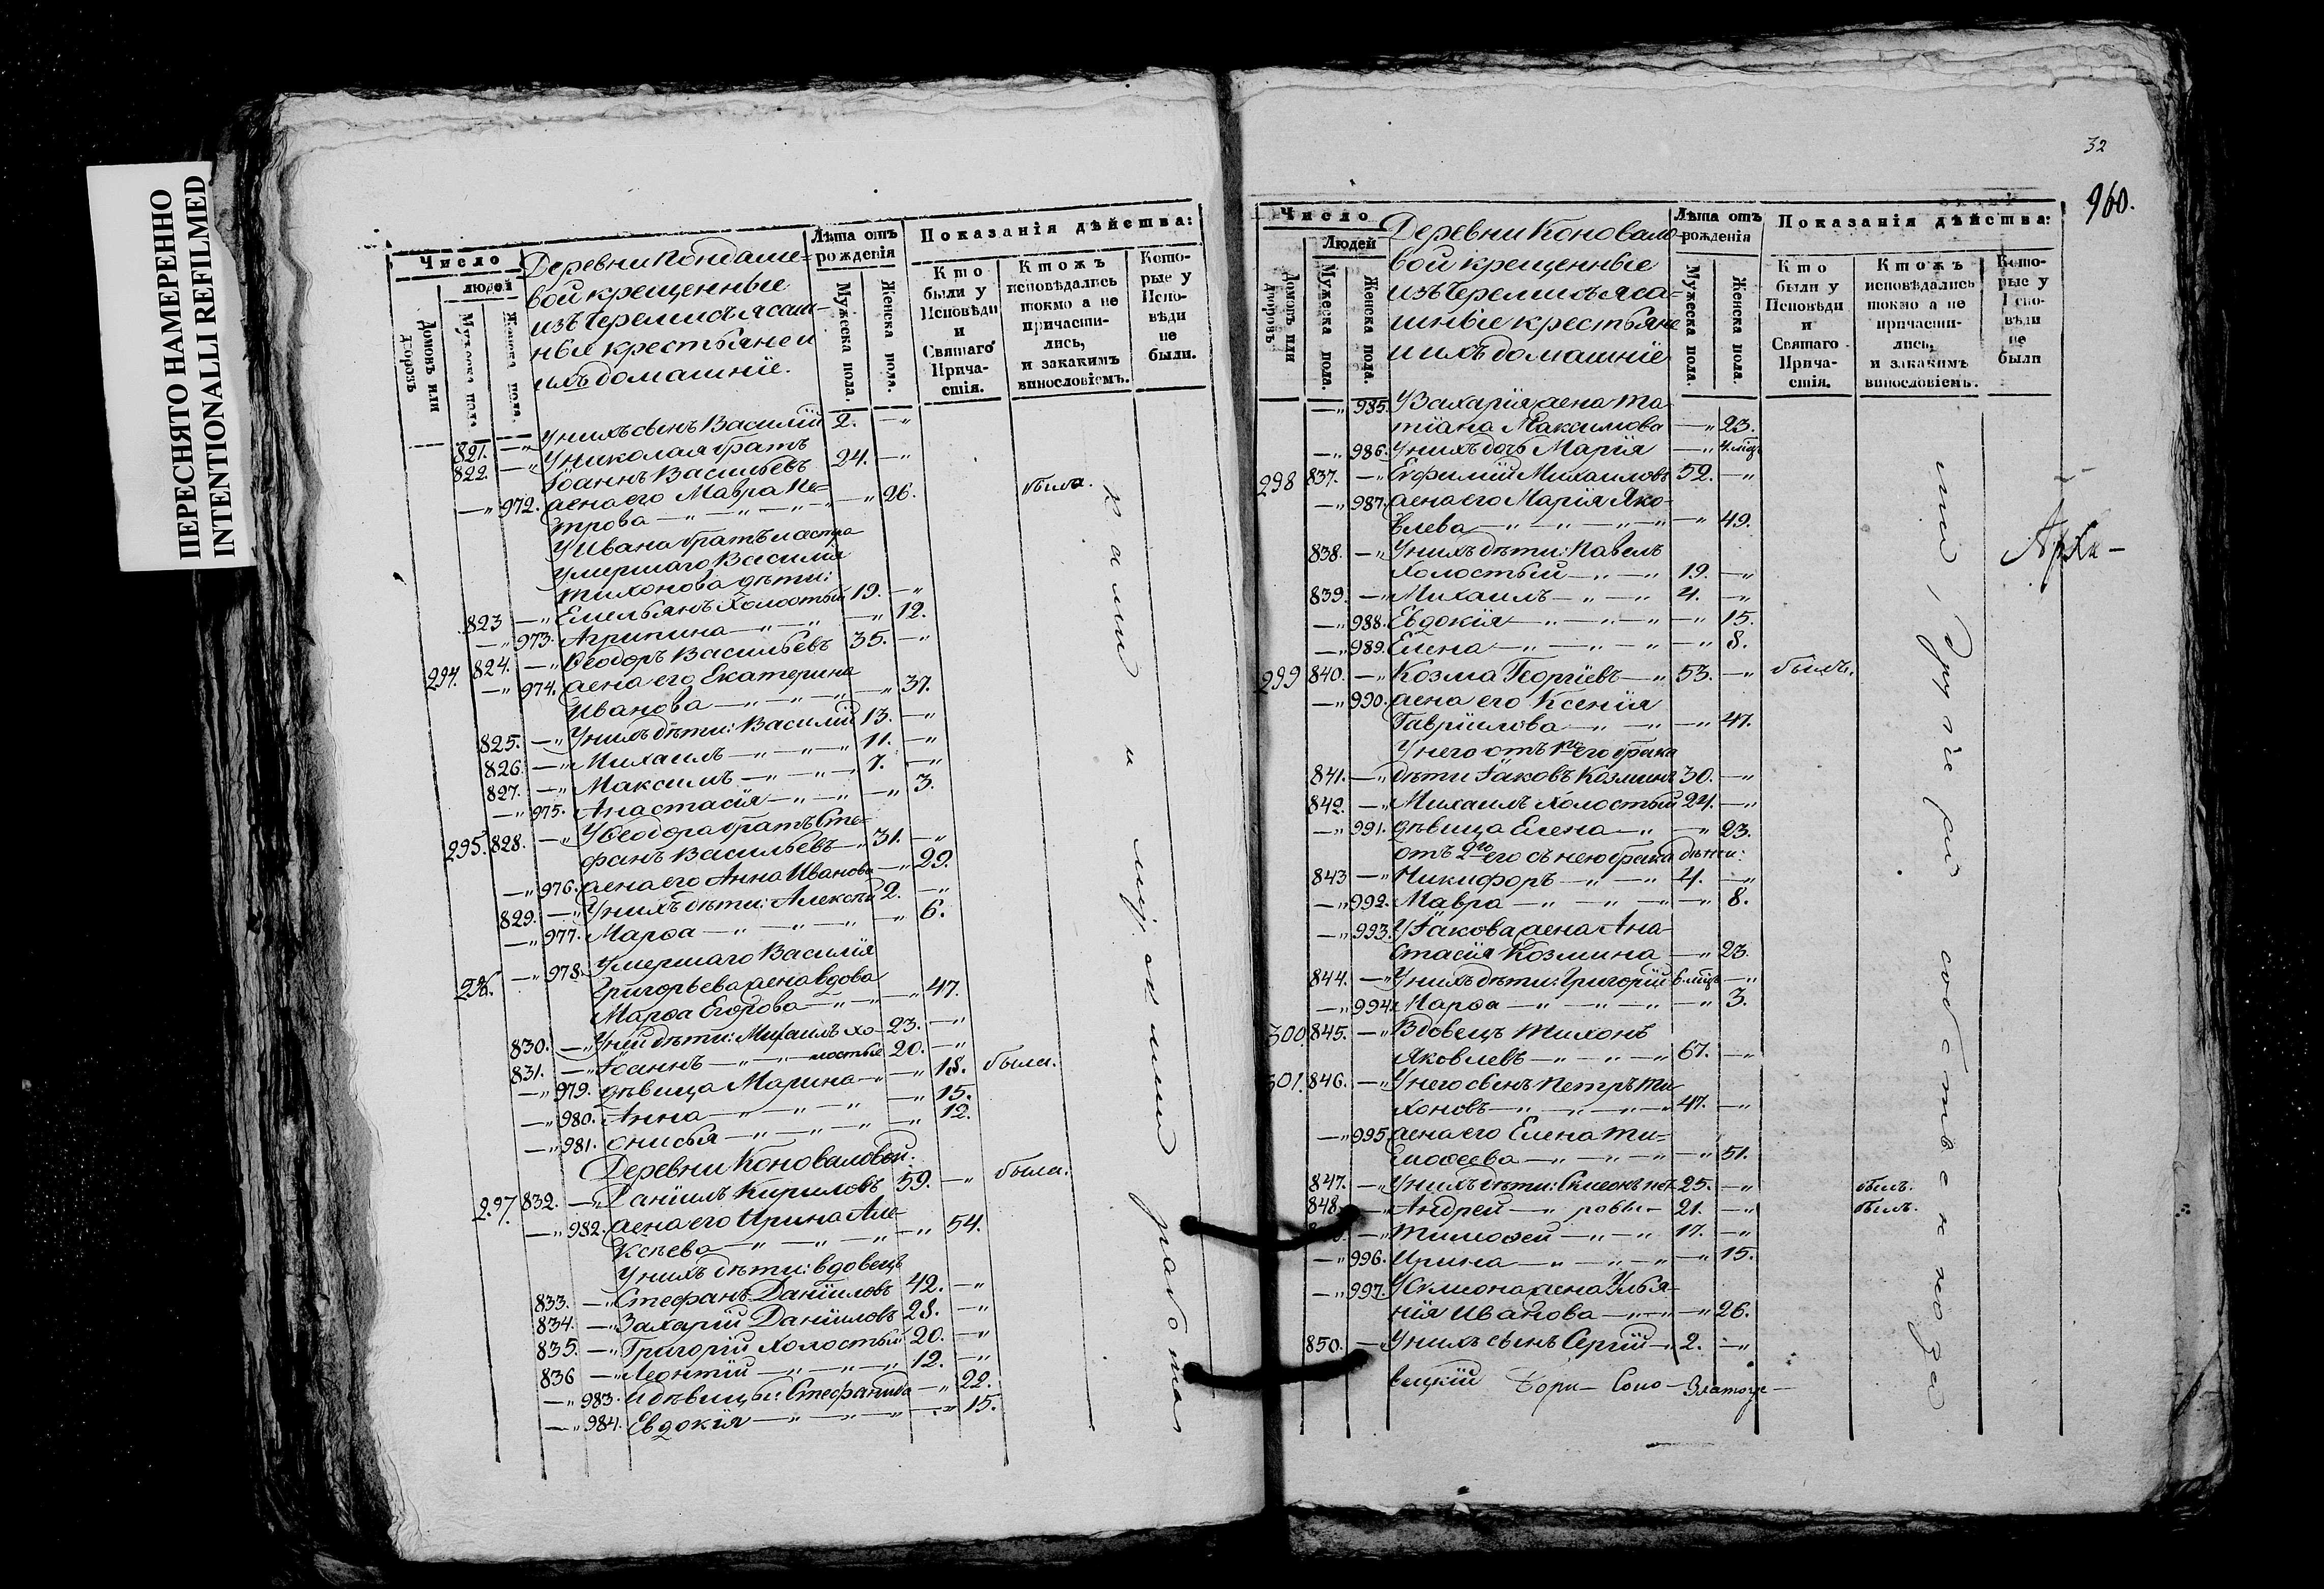 ПЕРЕСНЯТО НАМЕРЕННО
INTENTIONALLI REFILMED
Число
людей
Домовъ или дворовъ
Мужеска пола
Женска пола.
Деревни Кондаше-
вой крещенные
изъ Черемисъ ясаш-
ные крестьяне и
ихъ домашніе.
Лѣта отъ рожденія
Мужеска пола.
Женска пола.
Показанія дѣйства:
Кто были у Исповѣди и Святаго Причастія.
Ктожъ исповѣдались токмо а не причастились, и закакимъ винословіемъ.
Которые у Исповѣди не были.
821. —„ У нихъ сынъ Василій 2. —„
822. —„ У Николая братъ
Іоаннъ Васильевъ 24. —„
—„ 972. жена его Мавра Пе=
трова —„ —„ —„ —„ 26. была.
У Ивана братъ и астра
умершаго Василія
Тихонова дѣти:
823 —„ Емельянъ Холостый 19. —„
—„ 973. Агрипина —„ —„ —„ 12.
294. 824. —„ Ѳеодоръ Васильевъ 35. —„
—„ 974. жена его Екатерина
Иванова —„ —„ —„ —„ 37.
825. —„ У нихъ дѣти: Василій 13. —„
826. —„ Михаилъ —„ —„ —„ 11. —„
827. —„ Максимъ —„ —„ —„ 7. —„
—„ 975. Анастасія —„ —„ —„ 3.
295. 828. —„ У Ѳеодора братъ Сте=
фанъ Васильевъ —„ 31. —„
—„ 976. жена его Анна Иванова —„ 29.
829. —„ У нихъ дѣти: Алексѣй 2. —„
—„ 977. Марѳа —„ —„ —„ —„ 6.
296. —„ 978. Умершаго Василія
Григорьева жена вдова
Марѳа Егорова —„ —„ —„ 47.
830. —„ У ней дѣти: Михаилъ хо- 23. —„
831. —„ Іоаннъ —„ —„ лостые 20. —„
—„ 979. дѣвица Марина —„ —„ 18. была.
—„ 980. Анна —„ —„ —„ —„ 15.
—„ 981. Онисья —„ —„ —„ —„ 12.
Деревни Коноваловой.
297. 832. —„ Даніилъ Кириловъ 59. —„ были.
—„ 982. жена его Ирина Але-
ксѣева —„ —„ —„ —„ 54.
У нихъ дѣти: вдовецъ
833. —„ Стефанъ Даніиловъ 42. —„
834. —„ Захарій Даніиловъ 28. —„
835. —„ Григорій холостый 20. —„
836 —„ Леонтій —„ —„ —„ 12. —„
—„ 983. и дѣвицы: Стефанида —„ 22.
—„ 984. Евдокія —„ —„ —„ —„ 15.
32
960.
Число
Людей
Домовъ или дворовъ
Мужеска пола.
Женска пола.
Деревни Коновало-
вой крещенные
изъ Черемисъ яса=
шніе крестьяне
и ихъ домашніе
Лѣта отъ рожденія
Мужеска пола.
Женска пола.
Показанія дѣйства:
Кто были у Исповѣди и Святаго Причастія.
Ктожъ исповѣдались токмо а не причастились, и закакимъ винословіемъ.
Которые у Исповѣди не были
—„ 985. У Захарія жена Та-
тіана Максимова —„ 23.
—„ 986. У нихъ дочь Марія —„
298 837. —„ Евфимій Михаиловъ 52. —„
—„ 987. жена его Марія Яко-
влева —„ —„ —„ —„ —„ 49.
838. —„ У нихъ дѣти: Павелъ
Холостый —„ —„ 19. —„
839. —„ Михаилъ —„ —„ 4. —„
—„ 988. Евдокія —„ —„ —„ —„ 15.
—„ 989. Елена —„ —„ —„ —„ 8.
299 840. —„ Козма Георгіевъ —„ 53. —„ былъ.
—„ 990. жена его Ксенія
Гавріилова —„ —„ —„ 47.
У него отъ 1го его брака
841. —„ дѣти Іаковъ Козминъ 30. —„
842. —„ Михаилъ холостый 24. —„
—„ 991. дѣвица Елена —„ —„ 23.
отъ 2го его съ нею брака дѣти:
843 —„ Никифоръ —„ —„ 4. —„
—„ 992. Мавра —„ —„ —„ —„ 8.
—„ 993. У Іакова жена Ана-
стасія Козмина —„ 23.
844. —„ У нихъ дѣти: Григорій 6. мцъ —„
—„ 994. Марѳа —„ —„ —„ —„ 3.
300. 845. —„ Вдовецъ Тихонъ
Яковлевъ —„ —„ —„ 67. —„
301. 846. —„ У него сынъ Петръ Ти-
хоновъ —„ —„ —„ —„ 47. —„
—„ 995. жена его Елена Ти=
моѳеева —„ —„ —„ —„ 51.
847. —„ У нихъ дѣти: Симеонъ пет- 25. —„ былъ.
848. —„ Андрей —„ ровы — 21. —„ былъ.
—„ Тимоѳей —„ —„ 17. —„
—„ 996. Ирина —„ —„ —„ —„ 15.
—„ 997. У Симеона жена Улья-
нія Иванова —„ —„ —„ 26.
850. —„ У нихъ сынъ Сергій —„ 2. —„